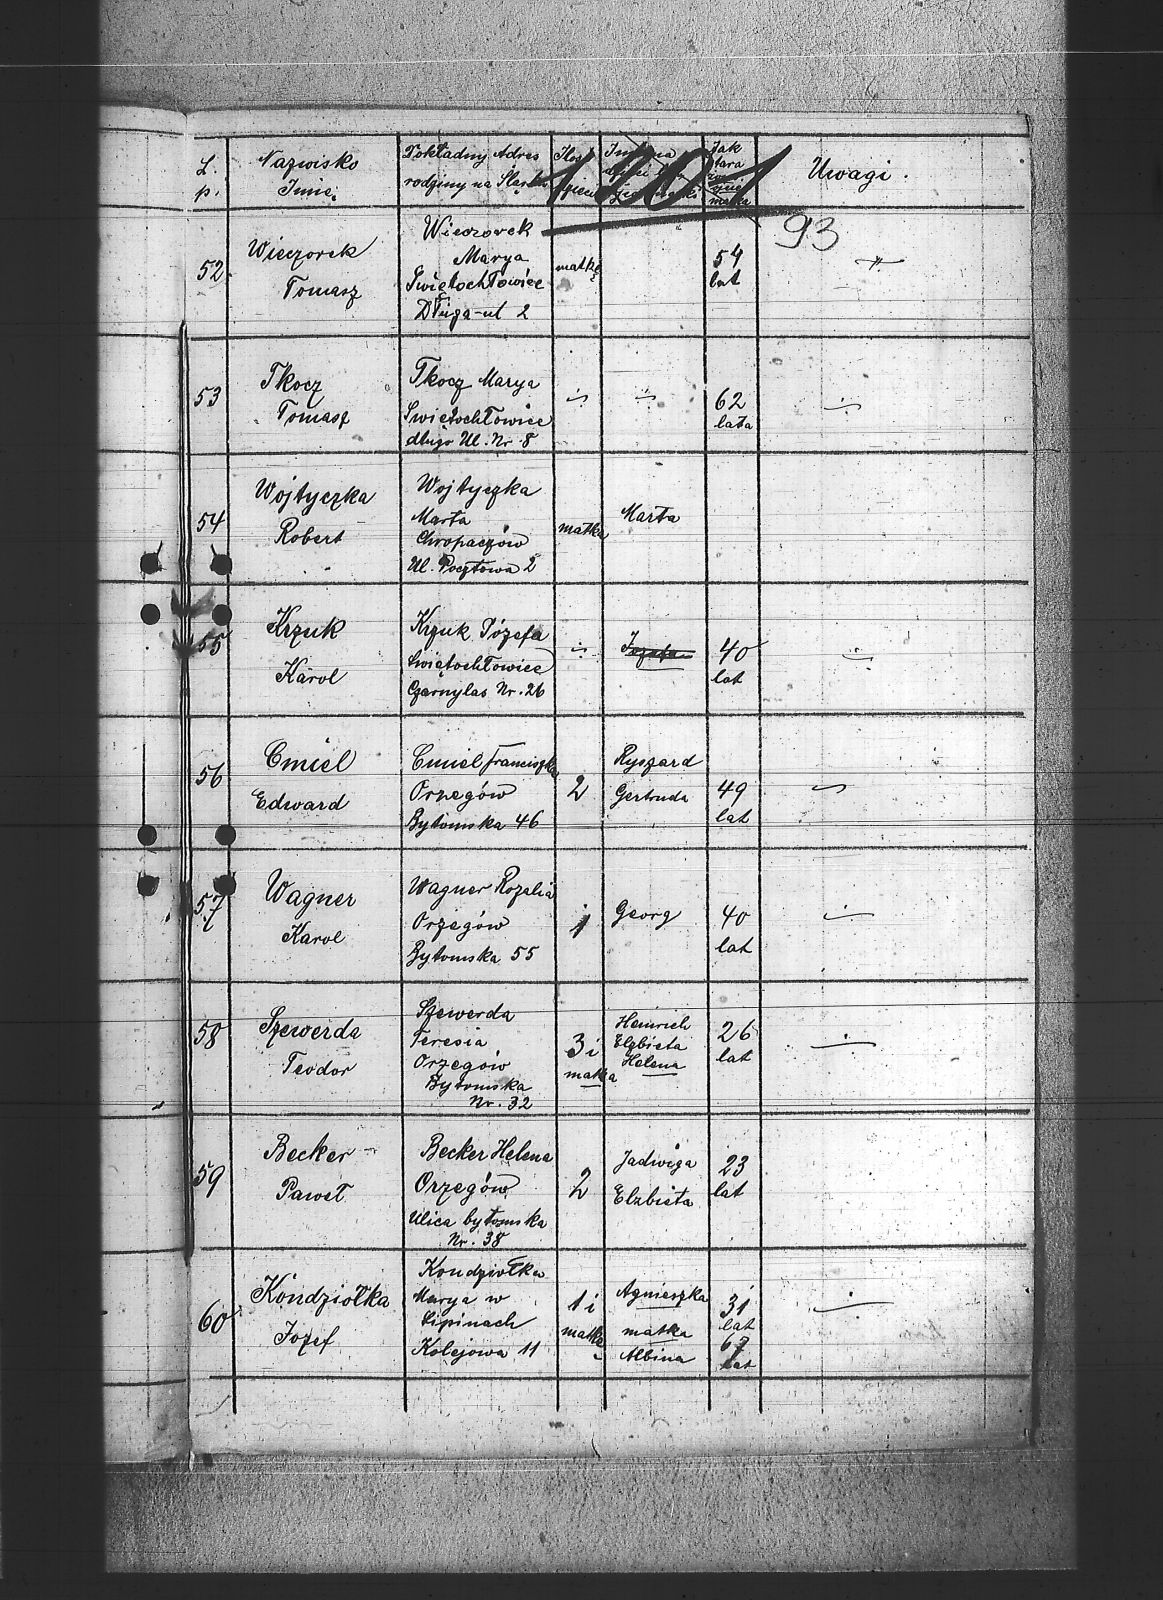 L. p.
Nazwisko
Imię.
Dokładny Adres
rodziny na Śląsku
Jak
stara
matka
Uwagi.
1201
93
52
Wieczorek
Tomasz
Wieczorek
Marya
Świętochłowice
Długa-ul 2
matkę
54
lat
53
Tkocz
Tomasz
Tkocz Marya
Świętochłowice
długo Ul. Nr 8
62
lata
54
Wojtyczka
Robert
Wojtyczka
Marta
Chropaczów
Ul. Pocztowa 2
matka
Marta
55
Krzuk
Karol
Krzuk Józefa
Świętochłowice
Czarnylas Nr. 26
Jozefa
40
lat
56
Cmiel
Edward
Cmiel Franciszka
Orzegów
Bytomska 46
2
Ryszard
Gertruda
49
lat
57
Wagner
Karol
Wagner Rozalia
Orzegów
Bytomska 55
1
Georg
40
lat
58
Szewerda
Teodor
Szewerda
Teresia
Orzegów
Bytomska
Nr. 32
3 i
matka
Heinrich
Elzbieta
Helena
26
lat
59
Becker
Paweł
Becker Helena
Orzegów
Ulica bytomska
Nr. 38
2
Jadwiga
Elzbieta
23
lat
60
Kondziołka
Jozef
Kondziołka
Marya w
Lipinach
Kolejowa 11
1 i
matkę
Agnieszka
matka
Albina
31
lat
67
lat